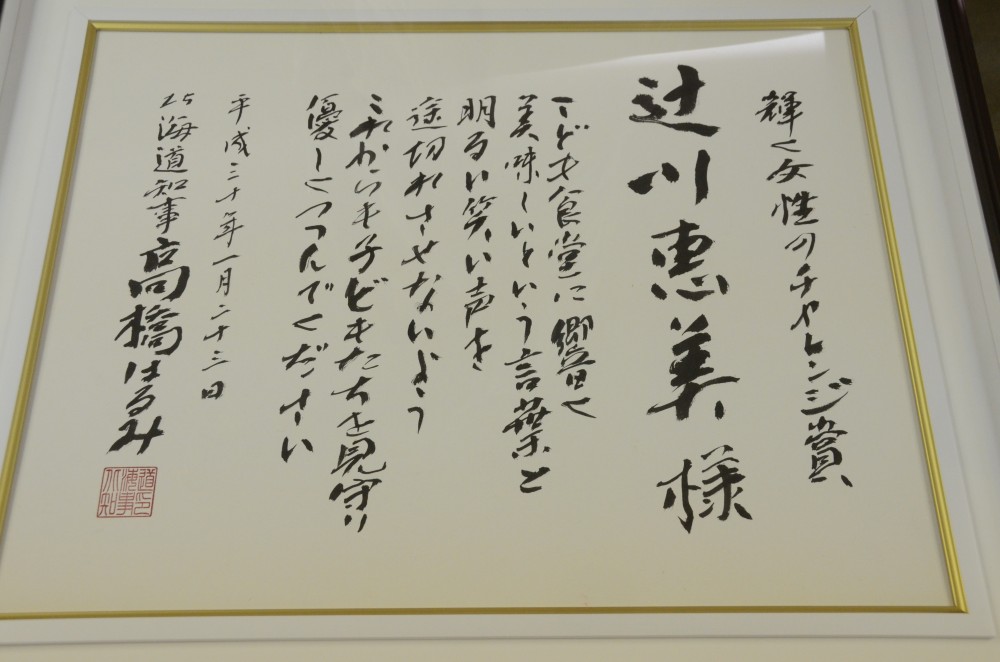 輝く女性のチャレンジ賞
辻川恵美様
こども食堂に響く
美味しいという言葉と
明るい笑い声を
途切れさせないよう
これからも子どもたちを見守り
優しくつつんでください
平成三十年一月二十三日
北海道知事 高橋はるみ
北海道知事印